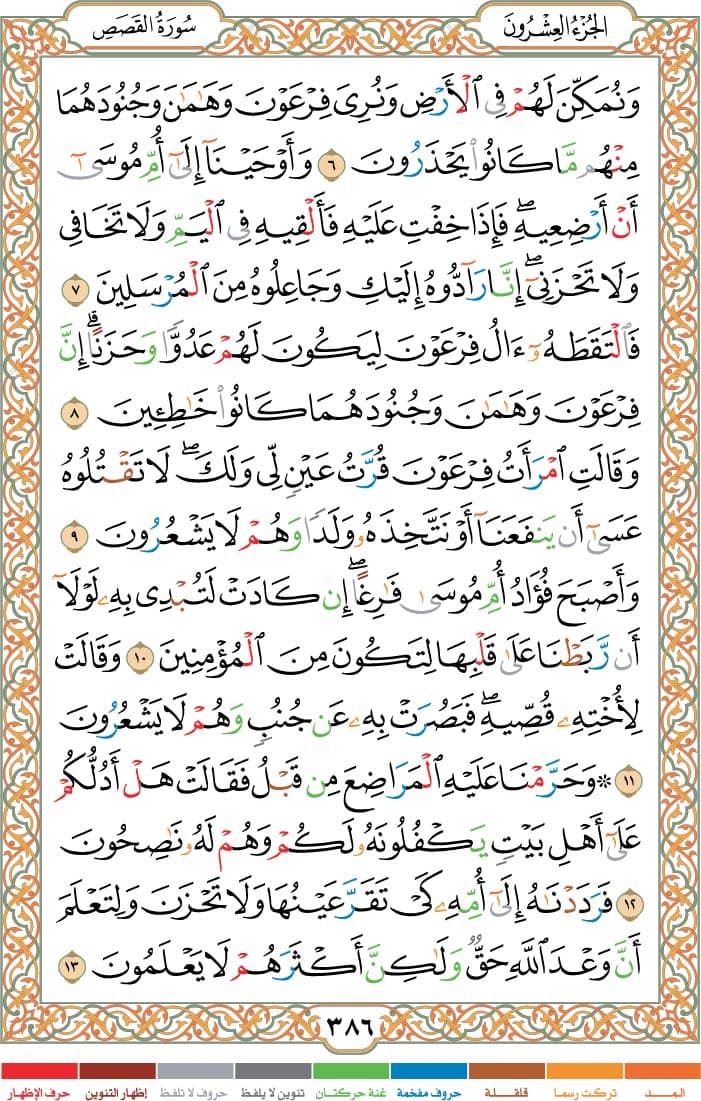 الجُزْءُ العِشْرُونَ
سُورَةُ القَصَصِ
وَنُمَكِّنَ لَهُمْ فِي ٱلْأَرْضِ وَنُرِىَ فِرْعَوْنَ وَهَٰمَٰنَ وَجُنُودَهُمَا
مِنْهُم مَّا كَانُوا۟ يَحْذَرُونَ ٦ وَأَوْحَيْنَآ إِلَىٰٓ أُمِّ مُوسَىٰٓ
أَنْ أَرْضِعِيهِ ۖ فَإِذَا خِفْتِ عَلَيْهِ فَأَلْقِيهِ فِي ٱلْيَمِّ وَلَا تَخَافِي
وَلَا تَحْزَنِىٓ ۖ إِنَّا رَآدُّوهُ إِلَيْكِ وَجَاعِلُوهُ مِنَ ٱلْمُرْسَلِينَ ٧
فَٱلْتَقَطَهُۥٓ ءَالُ فِرْعَوْنَ لِيَكُونَ لَهُمْ عَدُوًّا وَحَزَنًا ۗ إِنَّ
فِرْعَوْنَ وَهَٰمَٰنَ وَجُنُودَهُمَا كَانُوا۟ خَٰطِـِٔينَ ٨
وَقَالَتِ ٱمْرَأَتُ فِرْعَوْنَ قُرَّتُ عَيْنٍ لِّى وَلَكَ ۖ لَا تَقْتُلُوهُ
عَسَىٰٓ أَن يَنفَعَنَآ أَوْ نَتَّخِذَهُۥ وَلَدًا وَهُمْ لَا يَشْعُرُونَ ٩
وَأَصْبَحَ فُؤَادُ أُمِّ مُوسَىٰ فَٰرِغًا ۖ إِن كَادَتْ لَتُبْدِى بِهِۦ لَوْلَآ
أَن رَّبَطْنَا عَلَىٰ قَلْبِهَا لِتَكُونَ مِنَ ٱلْمُؤْمِنِينَ ١٠ وَقَالَتْ
لِأُخْتِهِۦ قُصِّيهِ ۖ فَبَصُرَتْ بِهِۦ عَن جُنُبٍ وَهُمْ لَا يَشْعُرُونَ
١١ ۞ وَحَرَّمْنَا عَلَيْهِ ٱلْمَرَاضِعَ مِن قَبْلُ فَقَالَتْ هَلْ أَدُلُّكُمْ
عَلَىٰٓ أَهْلِ بَيْتٍ يَكْفُلُونَهُۥ لَكُمْ وَهُمْ لَهُۥ نَٰصِحُونَ
١٢ فَرَدَدْنَٰهُ إِلَىٰٓ أُمِّهِۦ كَىْ تَقَرَّ عَيْنُهَا وَلَا تَحْزَنَ وَلِتَعْلَمَ
أَنَّ وَعْدَ ٱللَّهِ حَقٌّ وَلَٰكِنَّ أَكْثَرَهُمْ لَا يَعْلَمُونَ ١٣
٣٨٦
المــــد
تركت رسما
قلقـــلة
حروف مفخمة
غنة حركتان
تنوين لا يلفظ
حروف لا تلفظ
إظهار التنوين
حرف الإظهار